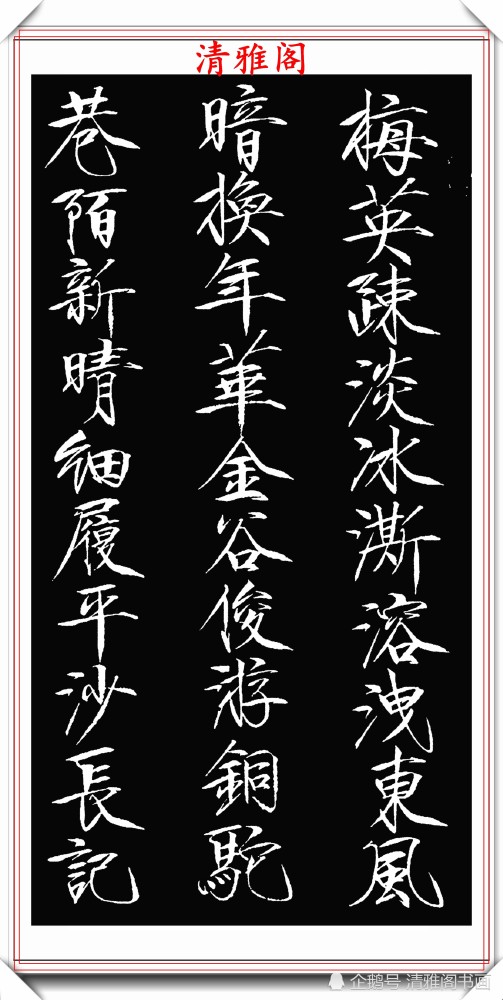 清雅阁
梅英疎淡冰澌溶洩東風
暗換年華金谷俊游銅駝
巷陌新晴細履平沙長記
企鹅号 清雅阁书画